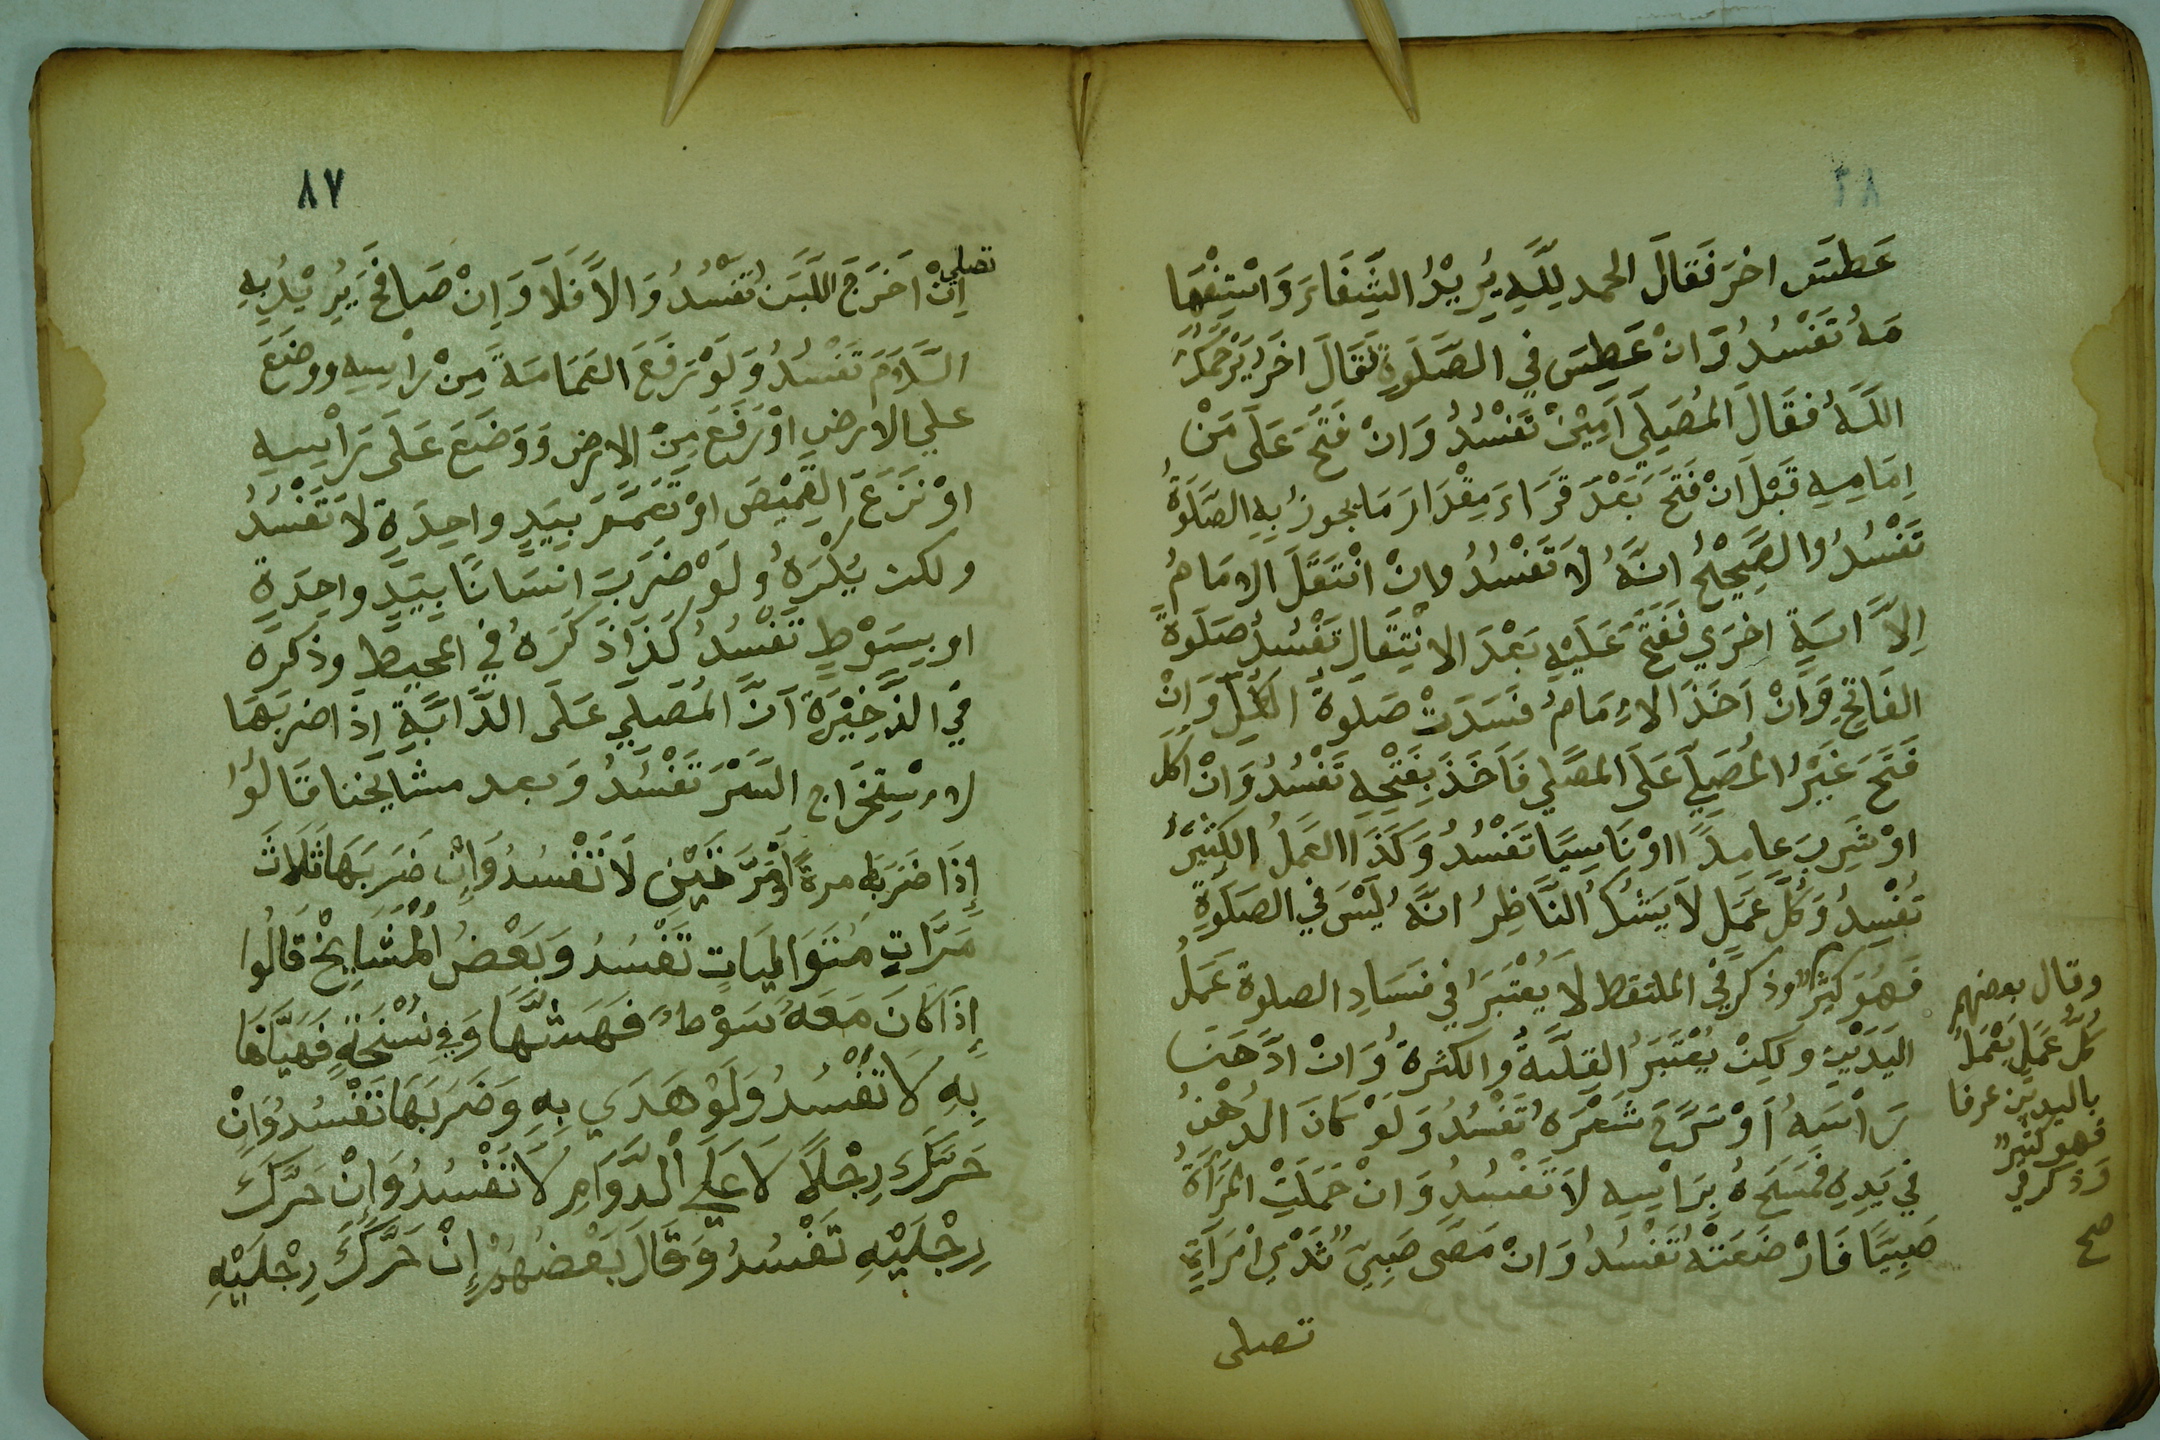 عَطَسَ اخَرَ فَقَالَ الحمد لِلَّهِ يُرِيْدُ الشِّفَاءَ وَاسْتِفْهَا
مَهُ تَفْسُدُ وَانْ عَطِسَ فِي الصَّلَوةِ فَقَالَ اخَرُ يَرْحَمُكَ
اللَّهُ فَقَالَ المُصَلِّي اَمِيْنْ تَفْسُدُ وَانْ فَتَحَ عَلَى مَنْ
اِمَامِهِ قَبْلَ انْ فَتَحَ بَعْدَ قَرَاءَ مِقْدَارَ مَا يجوزُ بِهِ الصَّلَوةُ
تَفْسُدُ وَالصَّحِيْحُ انَّهُ لاَ تَفْسُدُ وانْ انْتَقَلَ الامَامُ
اِلاَّ اٰيَةٍ اخرَي فَفَتَحَ عَلَيْهِ بَعْدَ الانْتِقَالِ تَفْسُدُ صَلَوةُ
الفَاتِحِ وَاِنْ اَخَذَ الاِمَامُ فَسَدَتْ صَلَوةُ الكُلِّ وَاِنْ
فَتَحَ غَيْرُ المُصَلِّي عَلَى المصَلِّي فَاَخَذَ بِفَتْحِهِ تَفْسُدُ وَاِنْ اكَلَ
اوْ شَرِبَ عَامِدًا اوْ نَاسِيًا تَفْسُدُ وَكَذَا العَمَلُ الكَثِيْرُ
تُفْسِدُ وَكُلُّ عَمَلٍ لاَ يَشُكُّ النَّاظِرُ انَّهُ لَيْسَ فِي الصَلَوةِ
فَهُوَ كَثِيْرٌ وذكرَ فِي الملتقط لاَ يُعْتَبَرُ فِي فَسَادِ الصلوة عَمَلُ
اليَدَيْنِ ولكِنْ يُعْتَبَرُ القِلَّةُ والكثرةُ وَانْ ادَّهَنَ
رَاْسَهُ اَوْ سَرَّحَ شَعْرَهُ تَفْسُدُ وَلَوْ كَانَ الدُهْنُ
فِي يَدِهِ فَمَسَحَهُ بِرَاْسِهِ لاَ تَفْسُدُ وَانْ حَمَلَتْ المَرْاَةُ
صَبِيًّا فَارْضَعَتْهُ تَفْسُدُ وَانْ مَصَّى صَبِيٌّ ثَدْيَ امْرَاَةٍ
تصلى
وقال بعضهم
كُلُّ عَمَلٍ يَعْمَلُ
باليدين عرفا
فهو كثيرٌ
وَذكر في
صح
٨٧
تصلي
اِنْ اَخرَجَ اللَّبَنَ تُفْسُدُ وَالاَّ فَلاَ وَاِنْ صَافَحَ يُرِيْدُ بِهِ
السَّلاَمَ تَفْسُدُ وَلَوْ رَفَعَ العَمَامَةَ مِنْ رَاْسِهِ ووضَعَ
علي الارض اوْ رَفَعَ مِنْ الارض وَوَضَعَ عَلَى رَاْسِهِ
اوْ نَزَعَ القَمِيْصَ اوْ تَعَمَّمَ بِيَدٍ واحِدَةٍ لاَ تَفْسُدُ
ولكن يُكْرَهُ ولَوْ ضَرَبَ انسَانًا بِيَدٍ واحِدَةٍ
او بِسَوْطٍ تَفْسُدُ كَذَا ذَكَرَهُ فِي المحيط وذكره
فِي الذَّخِيْرَة اَنَّ المُصَلِّي عَلَى الدَّابَّةِ اِذَا ضربَهَا
لاِسْتِخْرَاج السَّيْرَ تَفْسُدُ وَبعد مشايخنا قَالوُا
إِذَا ضَرَبَهَا مرةً اَوْ مَرَّتَيْنِ لَا تَفْسُدُ وَاِنْ ضَرَبَهَا ثَلاَثَ
مَرَّاتٍ مُتَوَالِيَاتٍ تَفْسُدُ وَبَعْضُ الْمَشَايِخْ قَالُوا
إِذَا كَانَ مَعَهُ سَوْطٌ فَهَشَّهَا وَفِي نُسْخَةٍ فَهَيَّاَهَا
بِهِ لَا تَفْسُدُ وَلَوْ هَدَي بِهِ وَضَرَبَهَا تَفْسُدُ وَاِنْ
حَرَّكَ رِجْلًا لَا عَلَي الدَّوَامِ لَا تَفْسُدُ وَإِنْ حَرَّكَ
رِجْلَيْهِ تَفْسُدُ وَقَالَ بَعْضُهُمْ إِنْ حَرَّكَ رِجْلَيْهِ